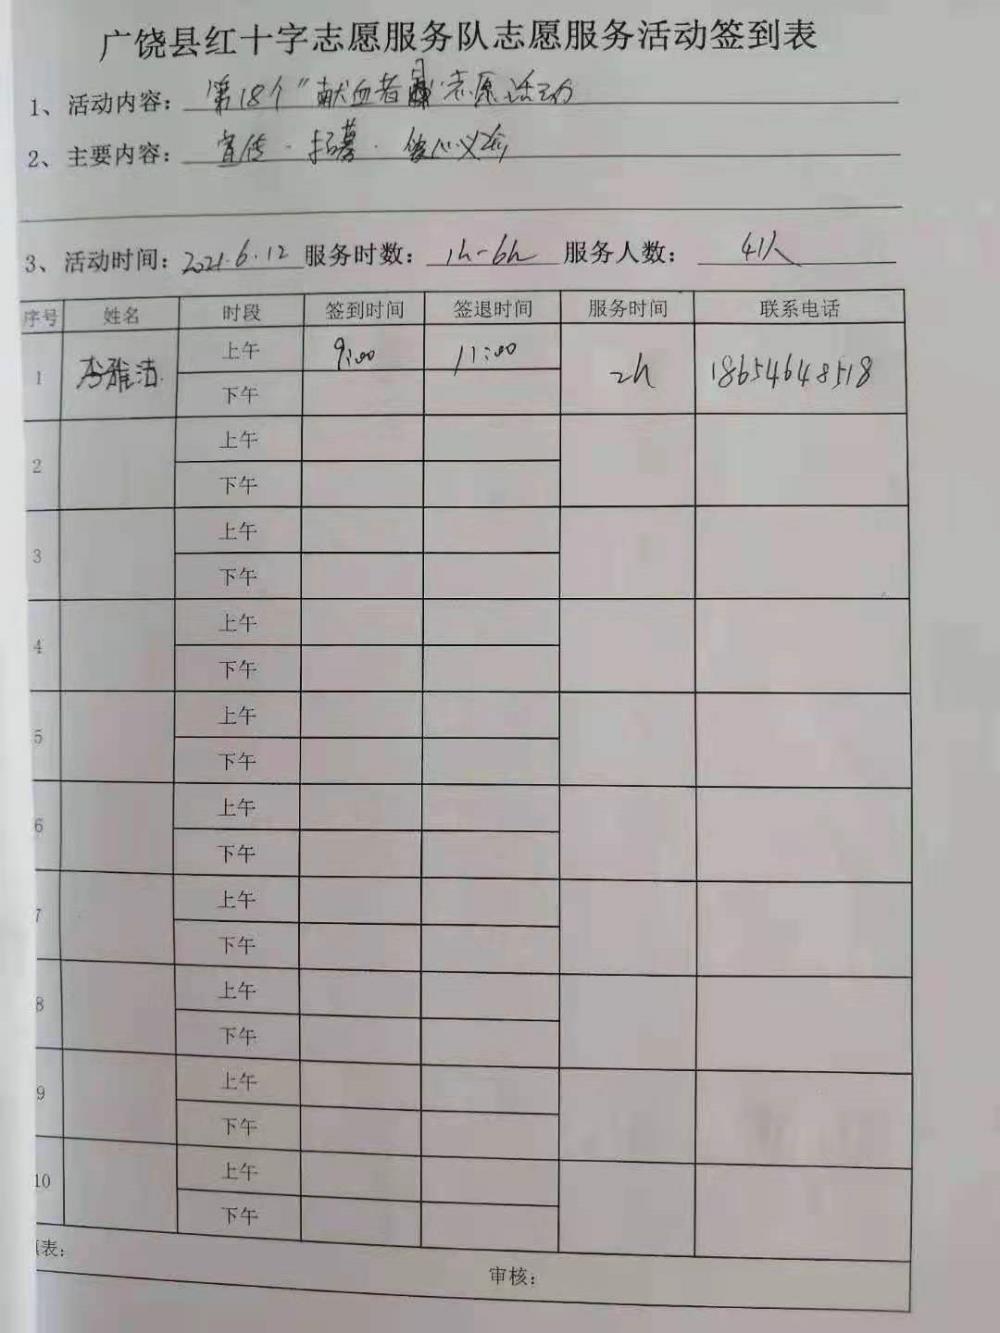 广饶县红十字志愿服务队志愿服务活动签到表
1、活动内容：第18个"献血者日"志愿活动
2、主要内容：宣传·招募·爱心义诊
3、活动时间：2021.6.12 服务时数：1h-6h 服务人数：41人
序号 姓名 时段 签到时间 签退时间 服务时间 联系电话
1 李雅洁 上午 9:00 11:00 2h 18654648518
下午
2 上午
下午
3 上午
下午
4 上午
下午
5 上午
下午
6 上午
下午
7 上午
下午
8 上午
下午
9 上午
下午
10 上午
下午
表：
审核：